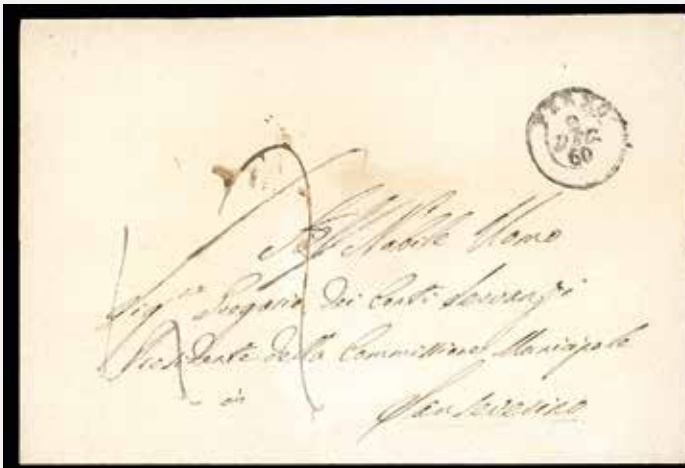 DIC
60
Nobile Uomo
Sig.re Gregorio dei Conti Servanzi
Presidente della Commissione Municipale
San Severino